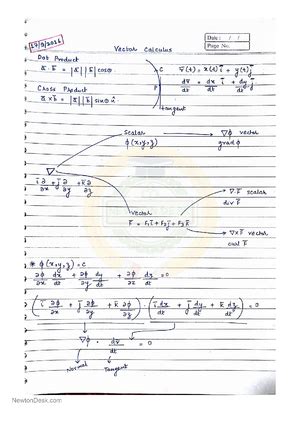 Date : / /
Page No.
Vector Calculus
Dot Product
a̅ · b̅ = |a̅| |b̅| cosθ
Cross Product
a̅ × b̅ = |a̅| |b̅| sinθ n̂
C
r̅(t) = x(t) i̅ + y(t) j̅
dr̅/dt = dx/dt i̅ + dy/dt j̅
tangent
Scalar
ϕ(x,y,z)
∇ϕ vector
grad ϕ
∇
i̅ ∂/∂x + j̅ ∂/∂y + k̅ ∂/∂z
vector
F̅ = F₁i̅ + F₂j̅ + F₃k̅
∇·F̅ scalar
div F̅
∇×F̅ vector
curl F̅
* ϕ(x,y,z) = C
∂ϕ/∂x dx/dt + ∂ϕ/∂y dy/dt + ∂ϕ/∂z dz/dt = 0
(i̅ ∂ϕ/∂x + j̅ ∂ϕ/∂y + k̅ ∂ϕ/∂z) · (i̅ dx/dt + j̅ dy/dt + k̅ dz/dt) = 0
∇ϕ · dr̅/dt = 0
Normal Tangent
NewtonDesk.com